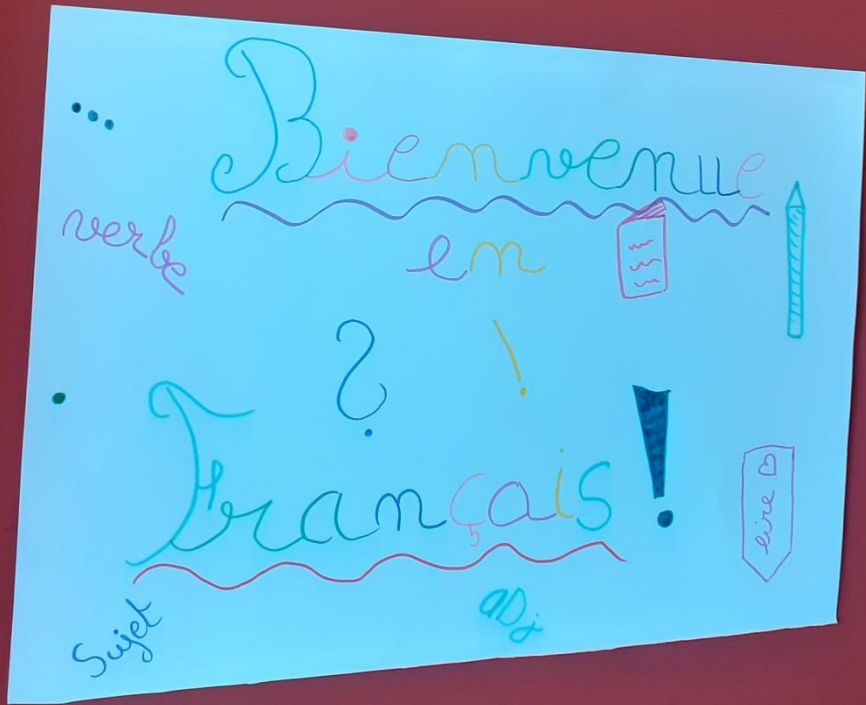 ...
Bienvenue
verbe
en
? !
.
Français !
lire
Sujet
aDj